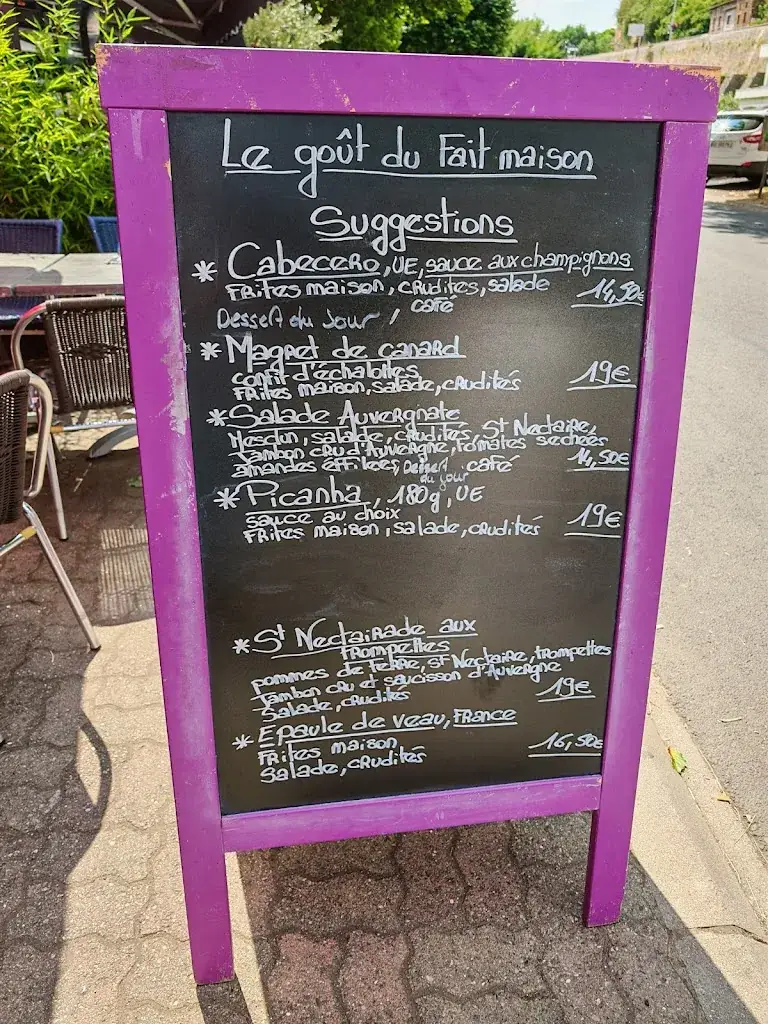 Le goût du Fait maison
Suggestions
* Cabecero, UE, sauce aux champignons
Frites maison, crudités, salade 14,50€
Dessert du Jour, café
* Magret de canard
confit d'échalottes
Frites maison, salade, crudités 19€
* Salade Auvergnate
Mesclun, salade, crudités, St Nectaire,
Jambon cru d'Auvergne, tomates sechées
amandes éffilées, Dessert du jour café 14,50€
* Picanha, 180g, UE
sauce au choix
Frites maison, salade, crudités 19€
* St Nectairade aux
trompettes
pommes de terre, St Nectaire, trompettes
Jambon cru et saucisson d'Auvergne
Salade, crudités 19€
* Epaule de veau, France
Frites maison 16,50€
Salade, crudités